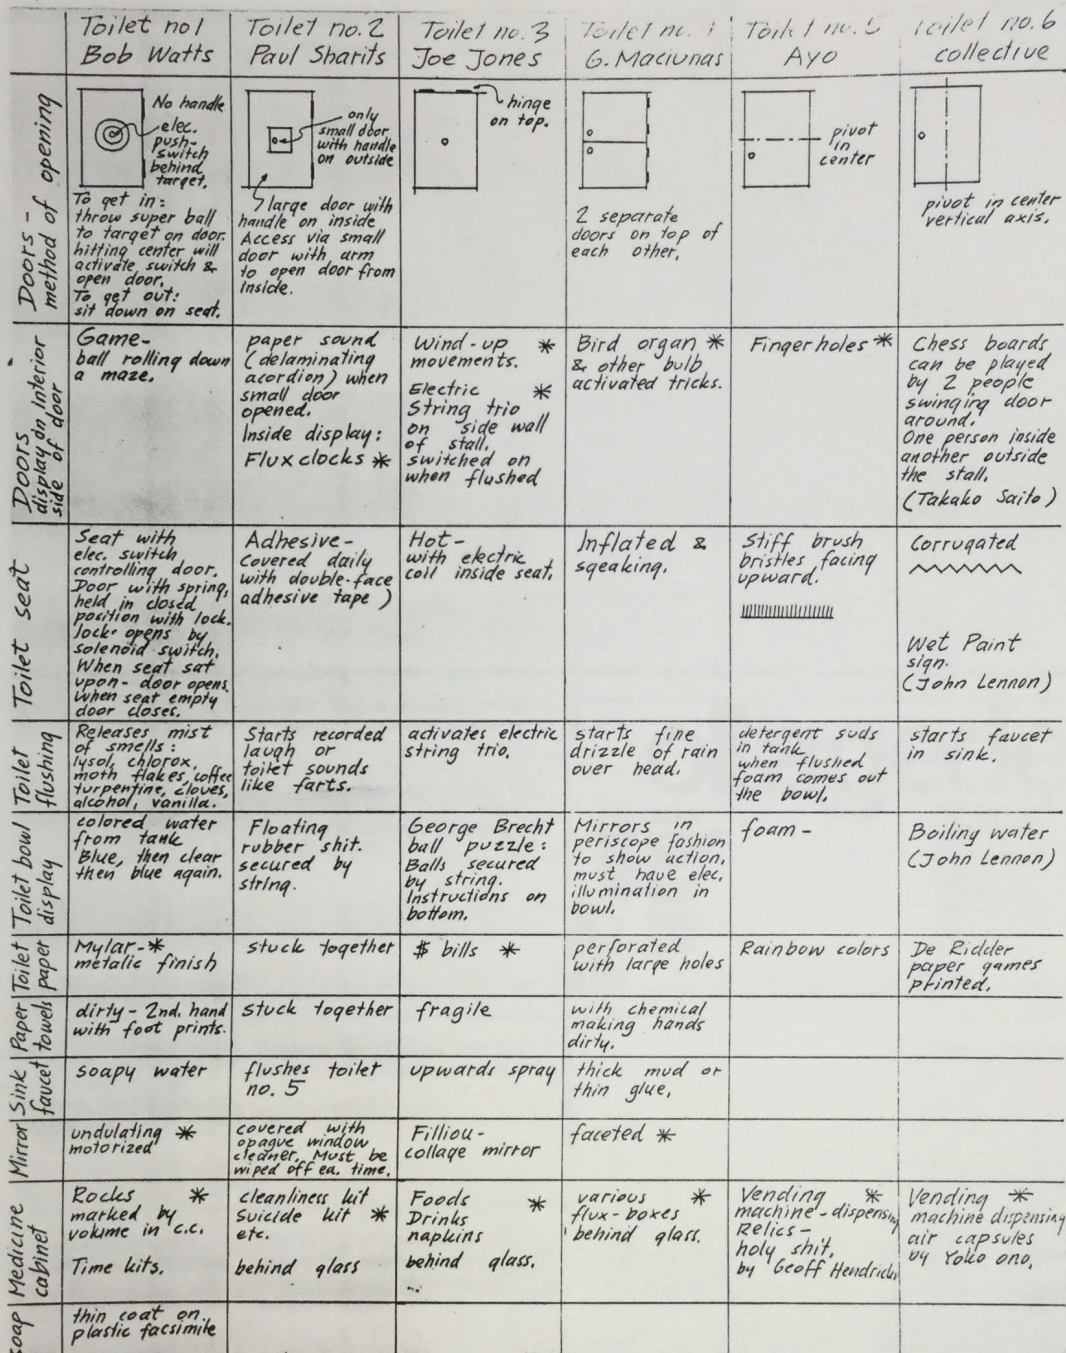 Toilet no1
Bob Watts
Toilet no.2
Paul Sharits
Toilet no.3
Joe Jones
Toilet no.
G. Maciunas
Toilet no. 5
Ayo
Toilet no.6
collective
Doors-
method of opening
No handle
elec.
push-
switch
behind
target.
To get in:
throw super ball
to target on door.
hitting center will
activate switch &
open door.
To get out:
sit down on seat.
only
small door
with handle
on outside
large door with
handle on inside
Access via small
door with arm
to open door from
inside.
hinge
on top.
2 separate
doors on top of
each other.
pivot
in
center
pivot in center
vertical axis.
Doors
display on interior
side of door
Game-
ball rolling down
a maze.
paper sound
(delaminating
acordion) when
small door
opened.
Inside display:
Flux clocks *
Wind-up *
movements.
Electric *
String trio
on side wall
of stall,
switched on
when flushed
Bird organ *
& other bulb
activated tricks.
Fingerholes *
Chess boards
can be played
by 2 people
swinging door
around.
One person inside
another outside
the stall.
(Takako Saito)
Toilet seat
Seat with
elec. switch
controlling door.
Door with spring,
held in closed
position with lock.
lock opens by
solenoid switch.
When seat sat
upon- door opens.
When seat empty
door closes.
Adhesive-
Covered daily
with double-face
adhesive tape )
Hot-
with electric
coil inside seat.
Inflated &
sqeaking.
Stiff brush
bristles facing
upward.
Corrugated
Wet Paint
sign.
(John Lennon)
Toilet
flushing
Releases mist
of smells:
lysol, chlorox,
moth flakes, coffee
turpentine, cloves,
alcohol, vanilla.
Starts recorded
laugh or
toilet sounds
like farts.
activates electric
string trio.
starts fine
drizzle of rain
over head.
detergent suds
in tank
when flushed
foam comes out
the bowl.
starts faucet
in sink.
Toilet bowl
display
colored water
from tank
Blue, then clear
then blue again.
Floating
rubber shit.
secured by
string.
George Brecht
ball puzzle:
Balls secured
by string.
Instructions on
bottom.
Mirrors in
periscope fashion
to show action.
must have elec.
illumination in
bowl.
foam-
Boiling water
(John Lennon)
Toilet
paper
Mylar-*
metalic finish
stuck together
$ bills *
perforated
with large holes
Rainbow colors
De Ridder
paper games
printed.
Paper
towels
dirty- 2nd. hand
with foot prints.
stuck together
fragile
with chemical
making hands
dirty.
Sink
faucet
soapy water
flushes toilet
no. 5
upwards spray
thick mud or
thin glue.
Mirror
undulating *
motorized
covered with
opaque window
cleaner. Must be
wiped off ea. time.
Filliou-
collage mirror
faceted *
Medicine
cabinet
Rocks *
marked by
volume in c.c.
Time kits.
cleanliness kit
Suicide kit *
etc.
behind glass
Foods *
Drinks
napkins
behind glass.
various *
flux-boxes
behind glass.
Vending *
machine-dispensing
relics-
holy shit.
by Geoff Hendricks
Vending *
machine dispensing
air capsules
by Yoko ono.
soap
thin coat on
plastic facsimile